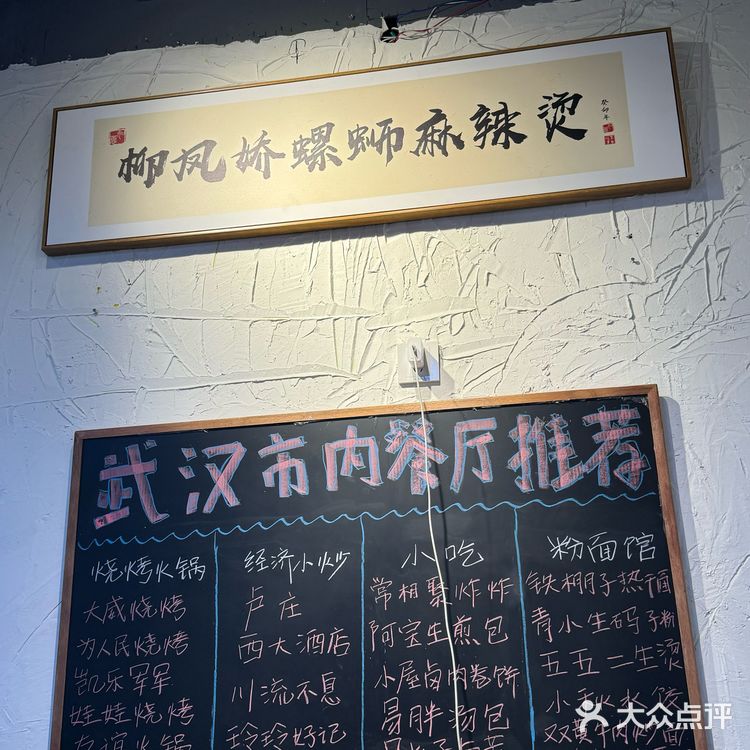 柳凤娇螺蛳麻辣烫
癸卯年
武汉市内餐厅推荐
烧烤火锅
大威烧烤
为人民烧烤
凯乐军军
娃娃烧烤
经济小炒
卢庄
西大酒店
川流不息
玲玲好记
小吃
常相聚炸炸
阿宝生煎包
小屋卤肉卷饼
易胖汤包
粉面馆
铁棚子热
青小生码子粉
五五二生烫
大众点评